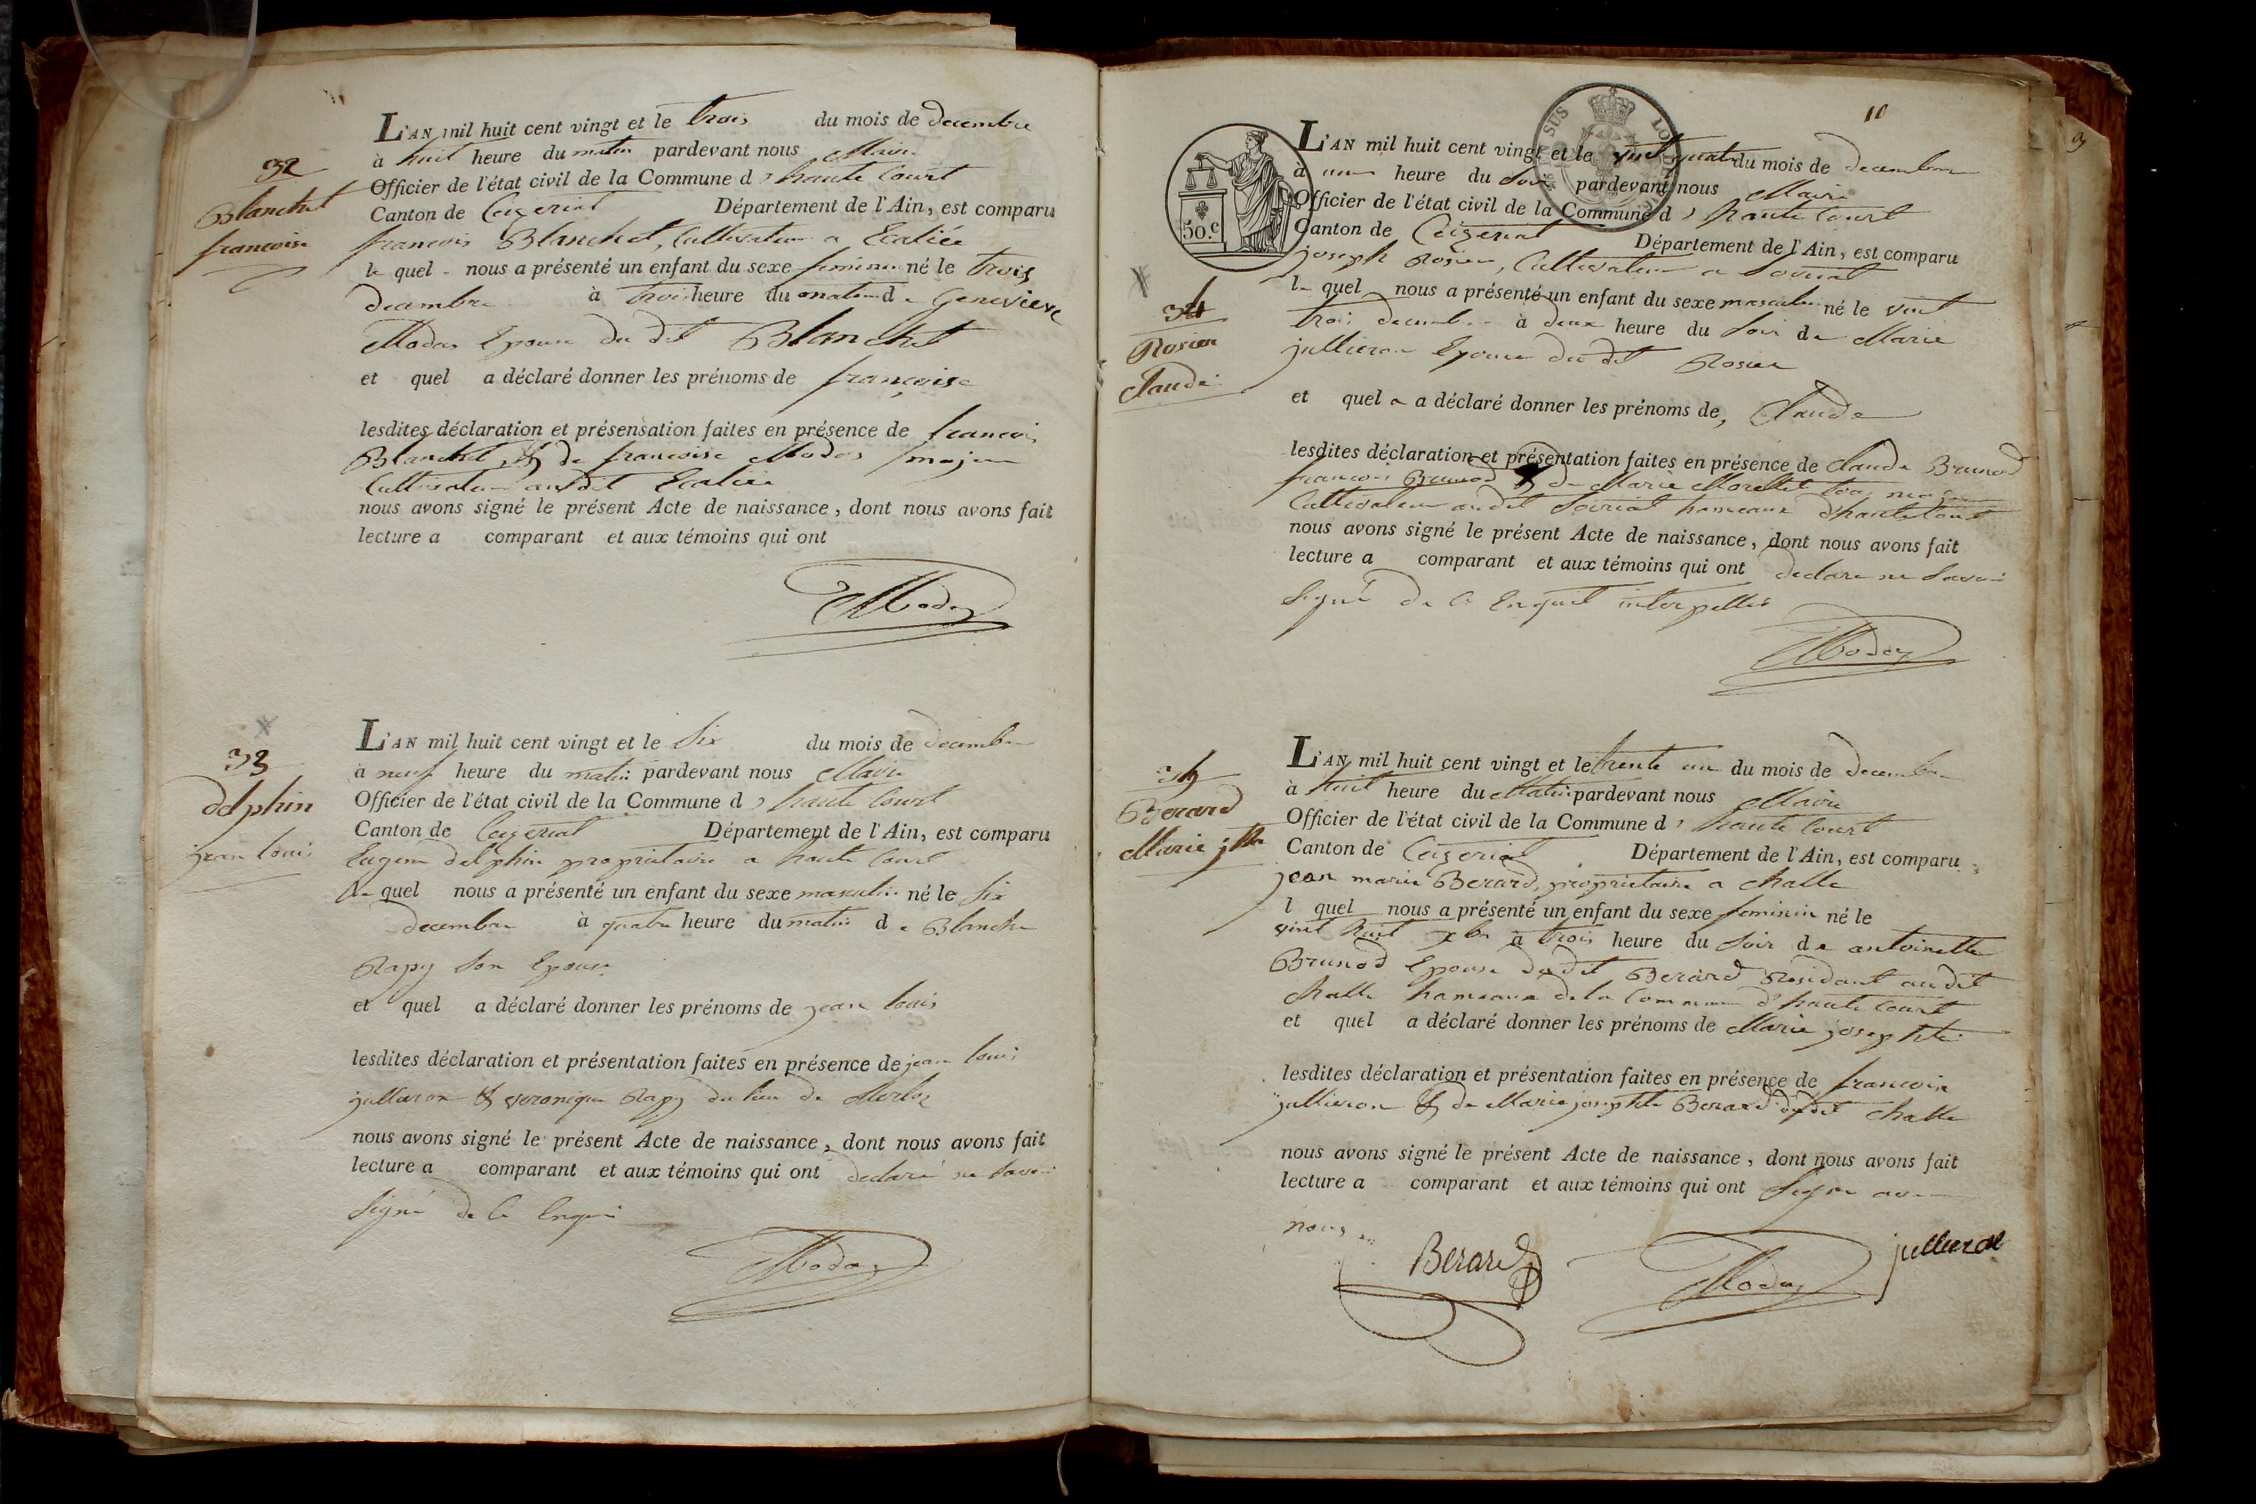 32
Blanchet
françoise
L'AN mil huit cent vingt et le trois du mois de decembre
à huit heure du matin pardevant nous Maire
Officier de l'état civil de la Commune d'haute Court
Canton de Ceizeriat Département de l'Ain, est comparu
francois Blanchet, Cultivateur a
le quel nous a présenté un enfant du sexe feminin né le trois
decembre à trois heure du matin de Genevieve
Moday Epouse du dit Blanchet
et quel a déclaré donner les prénoms de françoise
lesdites déclaration et présensation faites en présence de francois
Blanchet & de francoise Moday majeur
Cultivateur audit
nous avons signé le présent Acte de naissance, dont nous avons fait
lecture a comparant et aux témoins qui ont
Moday
33
delphin
jean louis
L'AN mil huit cent vingt et le Six du mois de decembre
à neuf heure du matin pardevant nous Maire
Officier de l'état civil de la Commune d'haute Court
Canton de Ceizeriat Département de l'Ain, est comparu
Eugene delphin proprietaire a haute Court
le quel nous a présenté un enfant du sexe masculin né le Six
decembre à quatre heure du matin de Blanche
Rapy Son Epouse
et quel a déclaré donner les prénoms de jean louis
lesdites déclaration et présentation faites en présence de jean louis
jullieron & veronique Rapy du lieu de
nous avons signé le présent Acte de naissance, dont nous avons fait
lecture a comparant et aux témoins qui ont declaré ne Savoir
Signé de Ce Enquis
Moday
10
SUS
LOI
50.c
34
Rosier
Claude
L'AN mil huit cent vingt et le vint quatre du mois de decembre
à une heure du Soir pardevant nous Maire
Officier de l'état civil de la Commune d'haute Court
Canton de Ceizeriat Département de l'Ain, est comparu
joseph Rosier, Cultivateur a
le quel nous a présenté un enfant du sexe masculin né le vint
trois decembre à deux heure du Soir de Marie
jullieron Epouse du dit Rosier
et quel a a déclaré donner les prénoms de, Claude
lesdites déclaration et présentation faites en présence de Claude Brunod
francois Brunod & de Marie Morellet
Cultivateur audit hameaux d'haute Court
nous avons signé le présent Acte de naissance, dont nous avons fait
lecture a comparant et aux témoins qui ont declare ne Savoir
Signé de Ce Enquit interpelles
Moday
35
Berard
Marie jtte
L'AN mil huit cent vingt et le trente un du mois de decembre
à huit heure du Matin pardevant nous Maire
Officier de l'état civil de la Commune d'haute Court
Canton de Ceizeriat Département de l'Ain, est comparu
jean marie Berard, proprietaire a Challe
l quel nous a présenté un enfant du sexe feminin né le
vint huit xbre à trois heure du Soir de antoinette
Brunod Epouse dudit Berard Residant audit
Challe hameaux de la Commune d'haute Court
et quel a déclaré donner les prénoms de Marie josephte
lesdites déclaration et présentation faites en présence de francois
jullieron & de Marie josephte Berard dudit Challe
nous avons signé le présent Acte de naissance, dont nous avons fait
lecture a comparant et aux témoins qui ont Signe avec
nous
Berard
Moday
jullieron
9